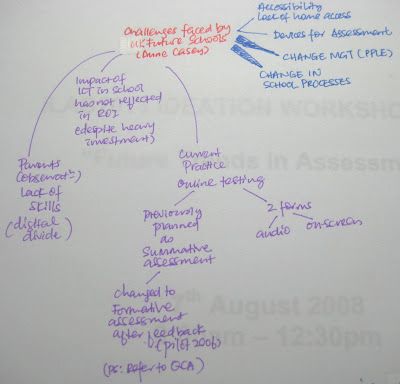 Challenges faced by
UK Future Schools
(Anne Casey)
Accessibility
Lack of home access
Devices for Assessment
CHANGE MGT (PPLE)
CHANGE IN
SCHOOL PROCESSES
Impact of
ICT in school
has not reflected
in ROI
(despite heavy
investment)
Parents
(observatn)
Lack of
skills
(digital
divide)
Current
Practice
online testing
Previously
planned
as
Summative
assessment
2 forms
audio
onscreen
changed to
Formative
assessment
after feedback
(pilot 2006)
(ps: Refer to QCA)
IDEATION WORKSHO
"Future
ds in Assessm
th August 2008
m – 12:30pm